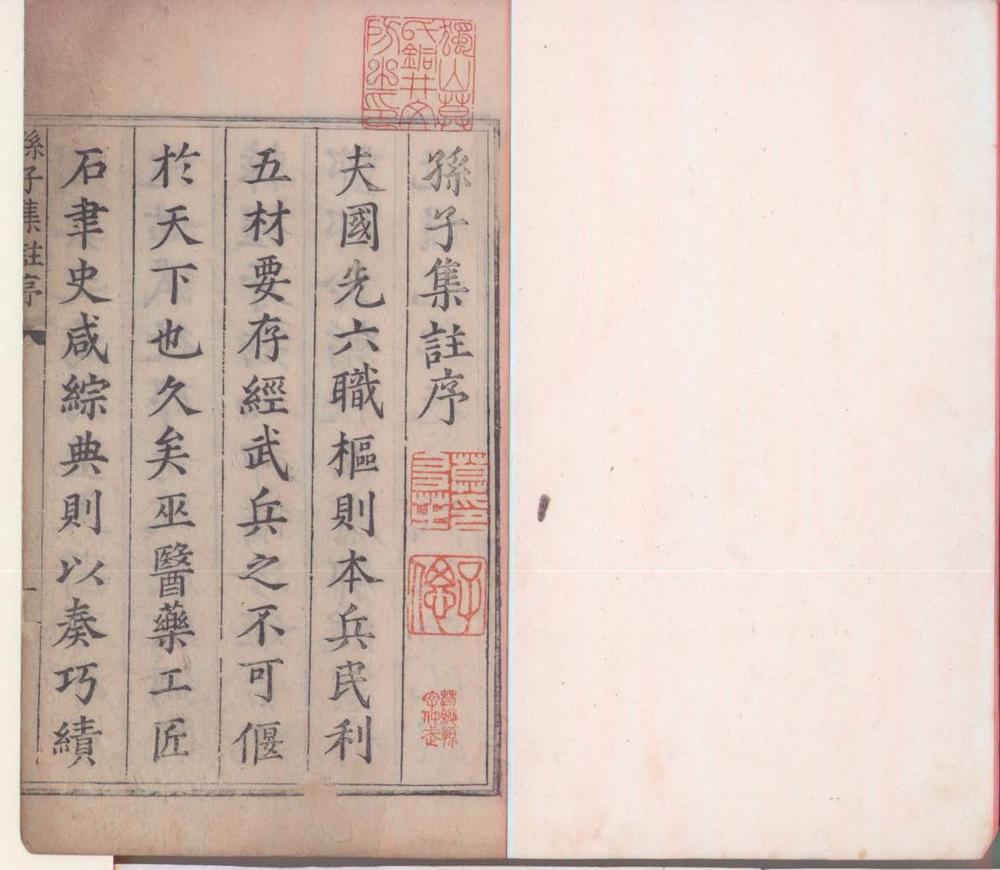 孫子集註序
夫國先六職樞則本兵民利
五材要存經武兵之不可偃
於天下也久矣巫醫藥工匠
石聿史咸綜典則以奏巧績
孫子集註序
一